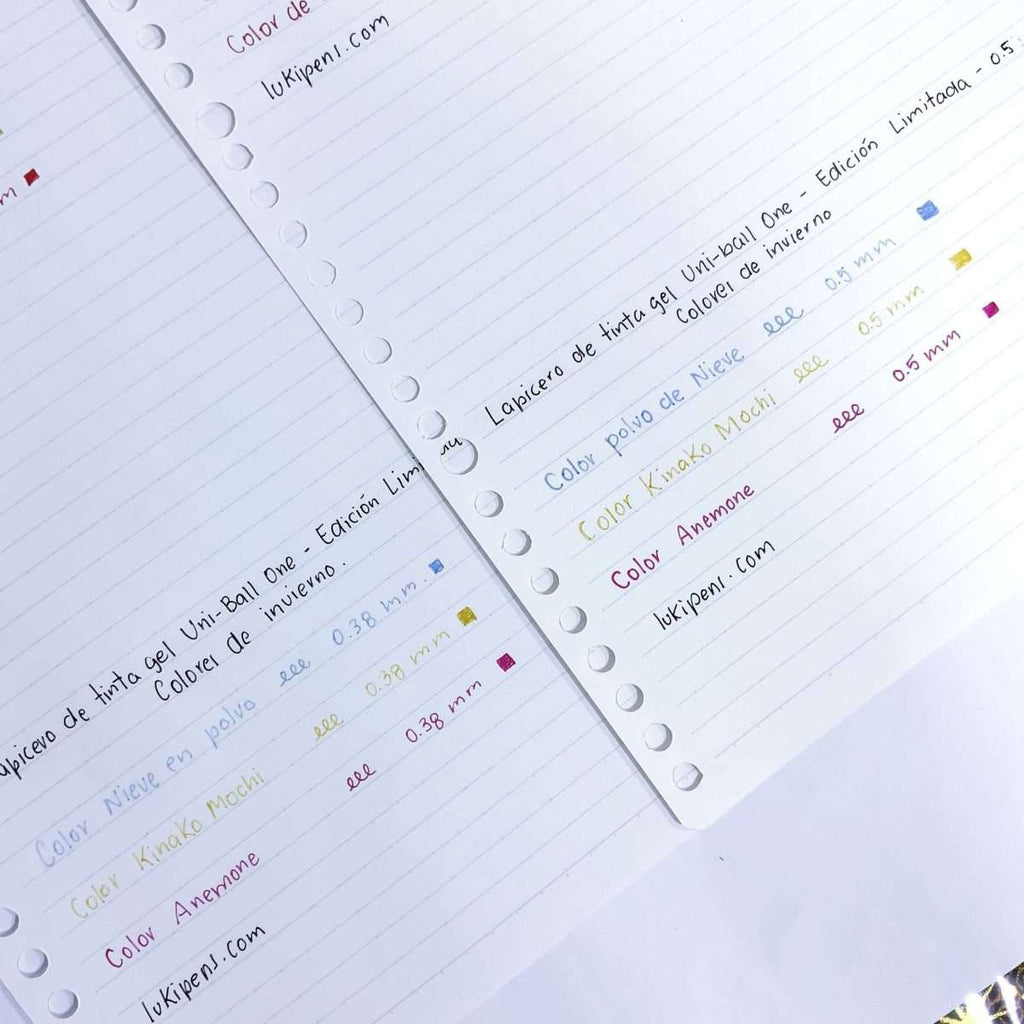 m
apicero de tinta gel Uni-Ball One - Edición Limi
Colores de invierno.
Color Nieve en polvo eee 0.38 mm.
Color Kinako Mochi eee 0.38 mm
Color Anemone eee 0.38 mm
lukipens.com
Color de
lukipens.com
Lapicero de tinta gel Uni-ball One - Edición Limitada - 0.5
Colores de invierno
Color polvo de Nieve eee 0.5 mm
Color Kinako Mochi eee 0.5 mm
Color Anemone eee 0.5 mm
lukipens.com